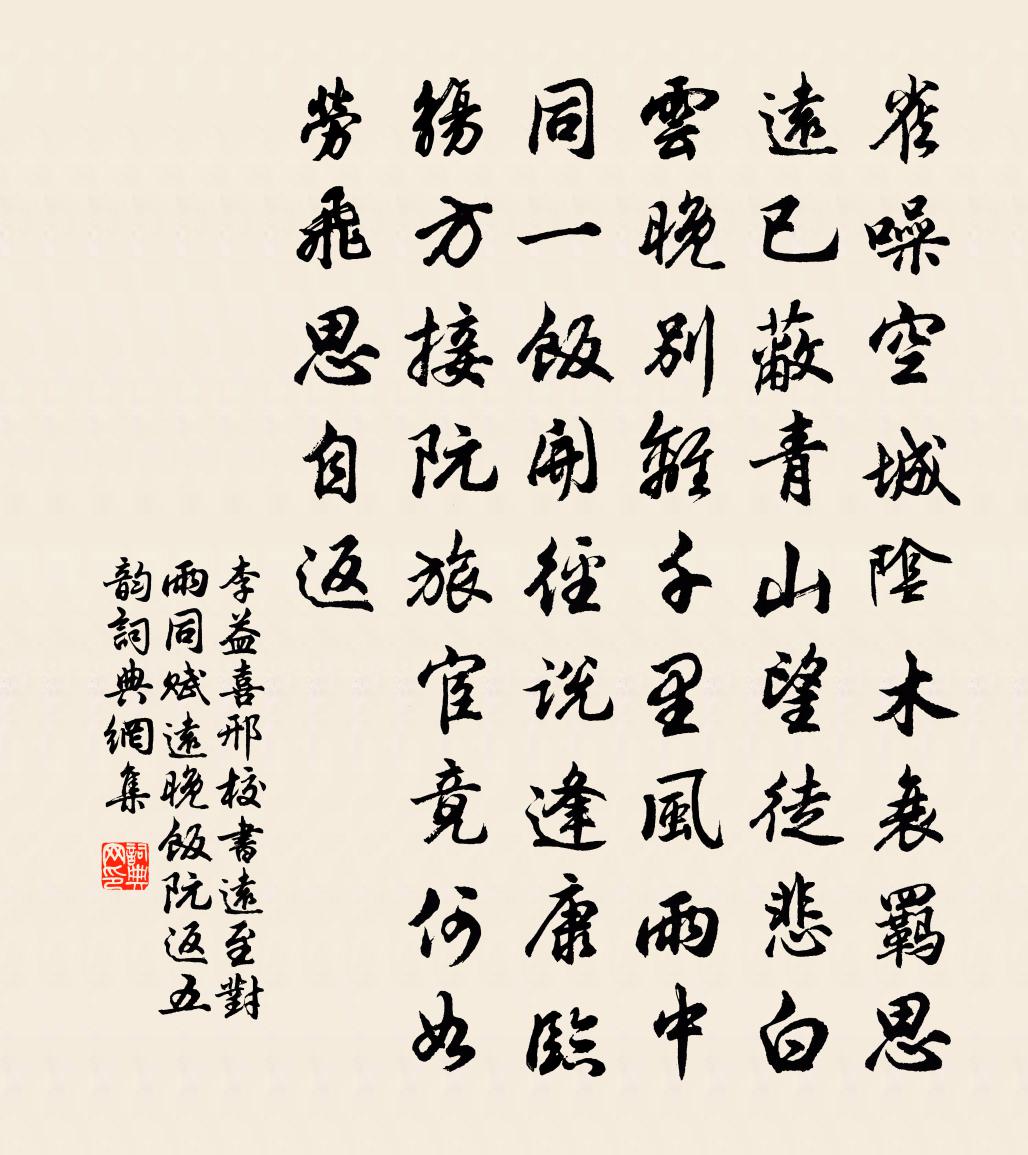 雀噪空城陰木衰羈思
遠已蔽青山望徒悲白
雲晚別離千里風雨中
同一飯開徑說逢康臨
觴方接阮旅宦竟何如
勞飛思自返
李益喜邢校書遠至對
雨同賦遠晚飯阮返五
韵詞典網集
詞典网印